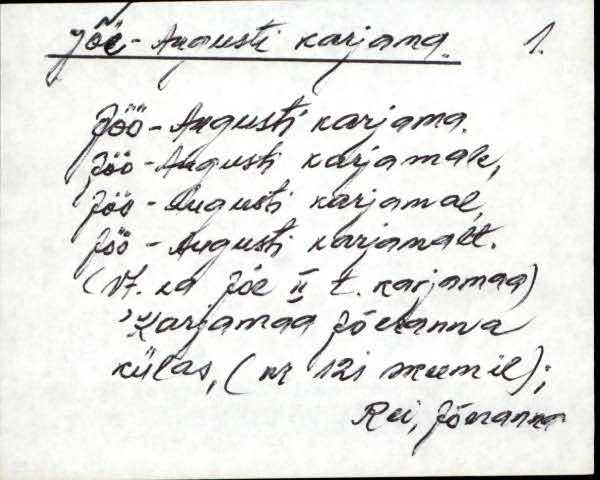 Jõe-Augusti karjama. 1.
Jöö-Augusti karjama.
Jöö-Augusti karjamale,
Jöö-Augusti karjamal,
Jöö-Augusti karjamalt.
(Vt. ka Jõe II t. karjamaa)
Karjamaa Jõeranna
külas, (nr 121 skeemil);
Rei, Jõeranna